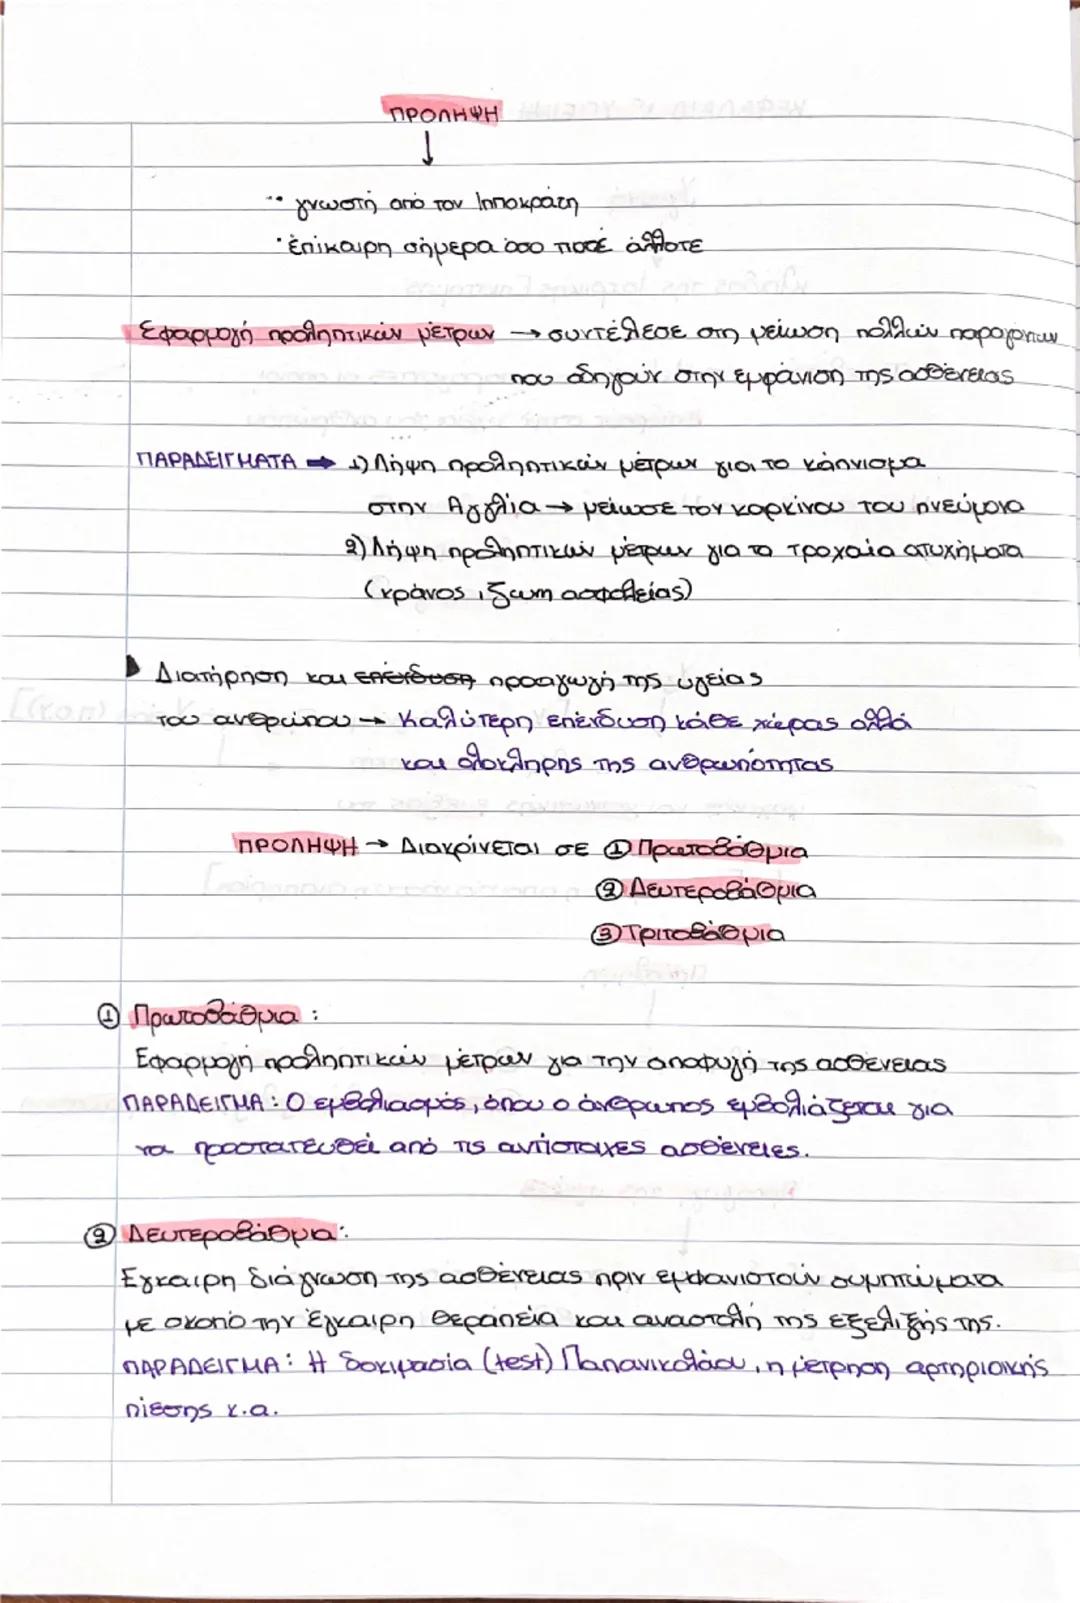 ΠΡΟΛΗΨΗ
↓
·· γνωστή από τον Ιπποκράτη
· έπίκαιρη σήμερα όσο ποτέ άλλοτε
Εφαρμογή προληπτικών μέτρων → συντέλεσε στη μείωση πολλών παραγόντων
που οδηγούν στην εμφάνιση της ασθένειας
ΠΑΡΑΔΕΙΓΜΑΤΑ ➡ 1) Λήψη προληπτικών μέτρων για το κάπνισμα
στην Αγγλία → μείωσε τον καρκίνου του πνεύμονα
2) Λήψη προληπτικών μέτρων για τα τροχαία ατυχήματα
(κράνος, ζώνη ασφαλείας)
Διατήρηση και επένδυση προαγωγή της υγείας
του ανθρώπου → Καλύτερη επένδυση κάθε χώρας αλλά
και ολόκληρης της ανθρωπότητας
ΠΡΟΛΗΨΗ → Διακρίνεται σε ① Πρωτοβάθμια
② Δευτεροβάθμια
③ Τριτοβάθμια
① Πρωτοβάθμια :
Εφαρμογή προληπτικών μέτρων για την αποφυγή της ασθένειας
ΠΑΡΑΔΕΙΓΜΑ : Ο εμβολιασμός, όπου ο άνθρωπος εμβολιάζεται για
να προστατευθεί από τις αντίστοιχες ασθένειες.
② Δευτεροβάθμια :
Εγκαιρη διάγνωση της ασθένειας πριν εμφανιστούν συμπτώματα
με σκοπό την έγκαιρη θεραπεία και αναστολή της εξελιξής της.
ΠΑΡΑΔΕΙΓΜΑ : Η δοκιμασία (test) Παπανικολάου, η μέτρηση αρτηριακής
πίεσης κ.α.